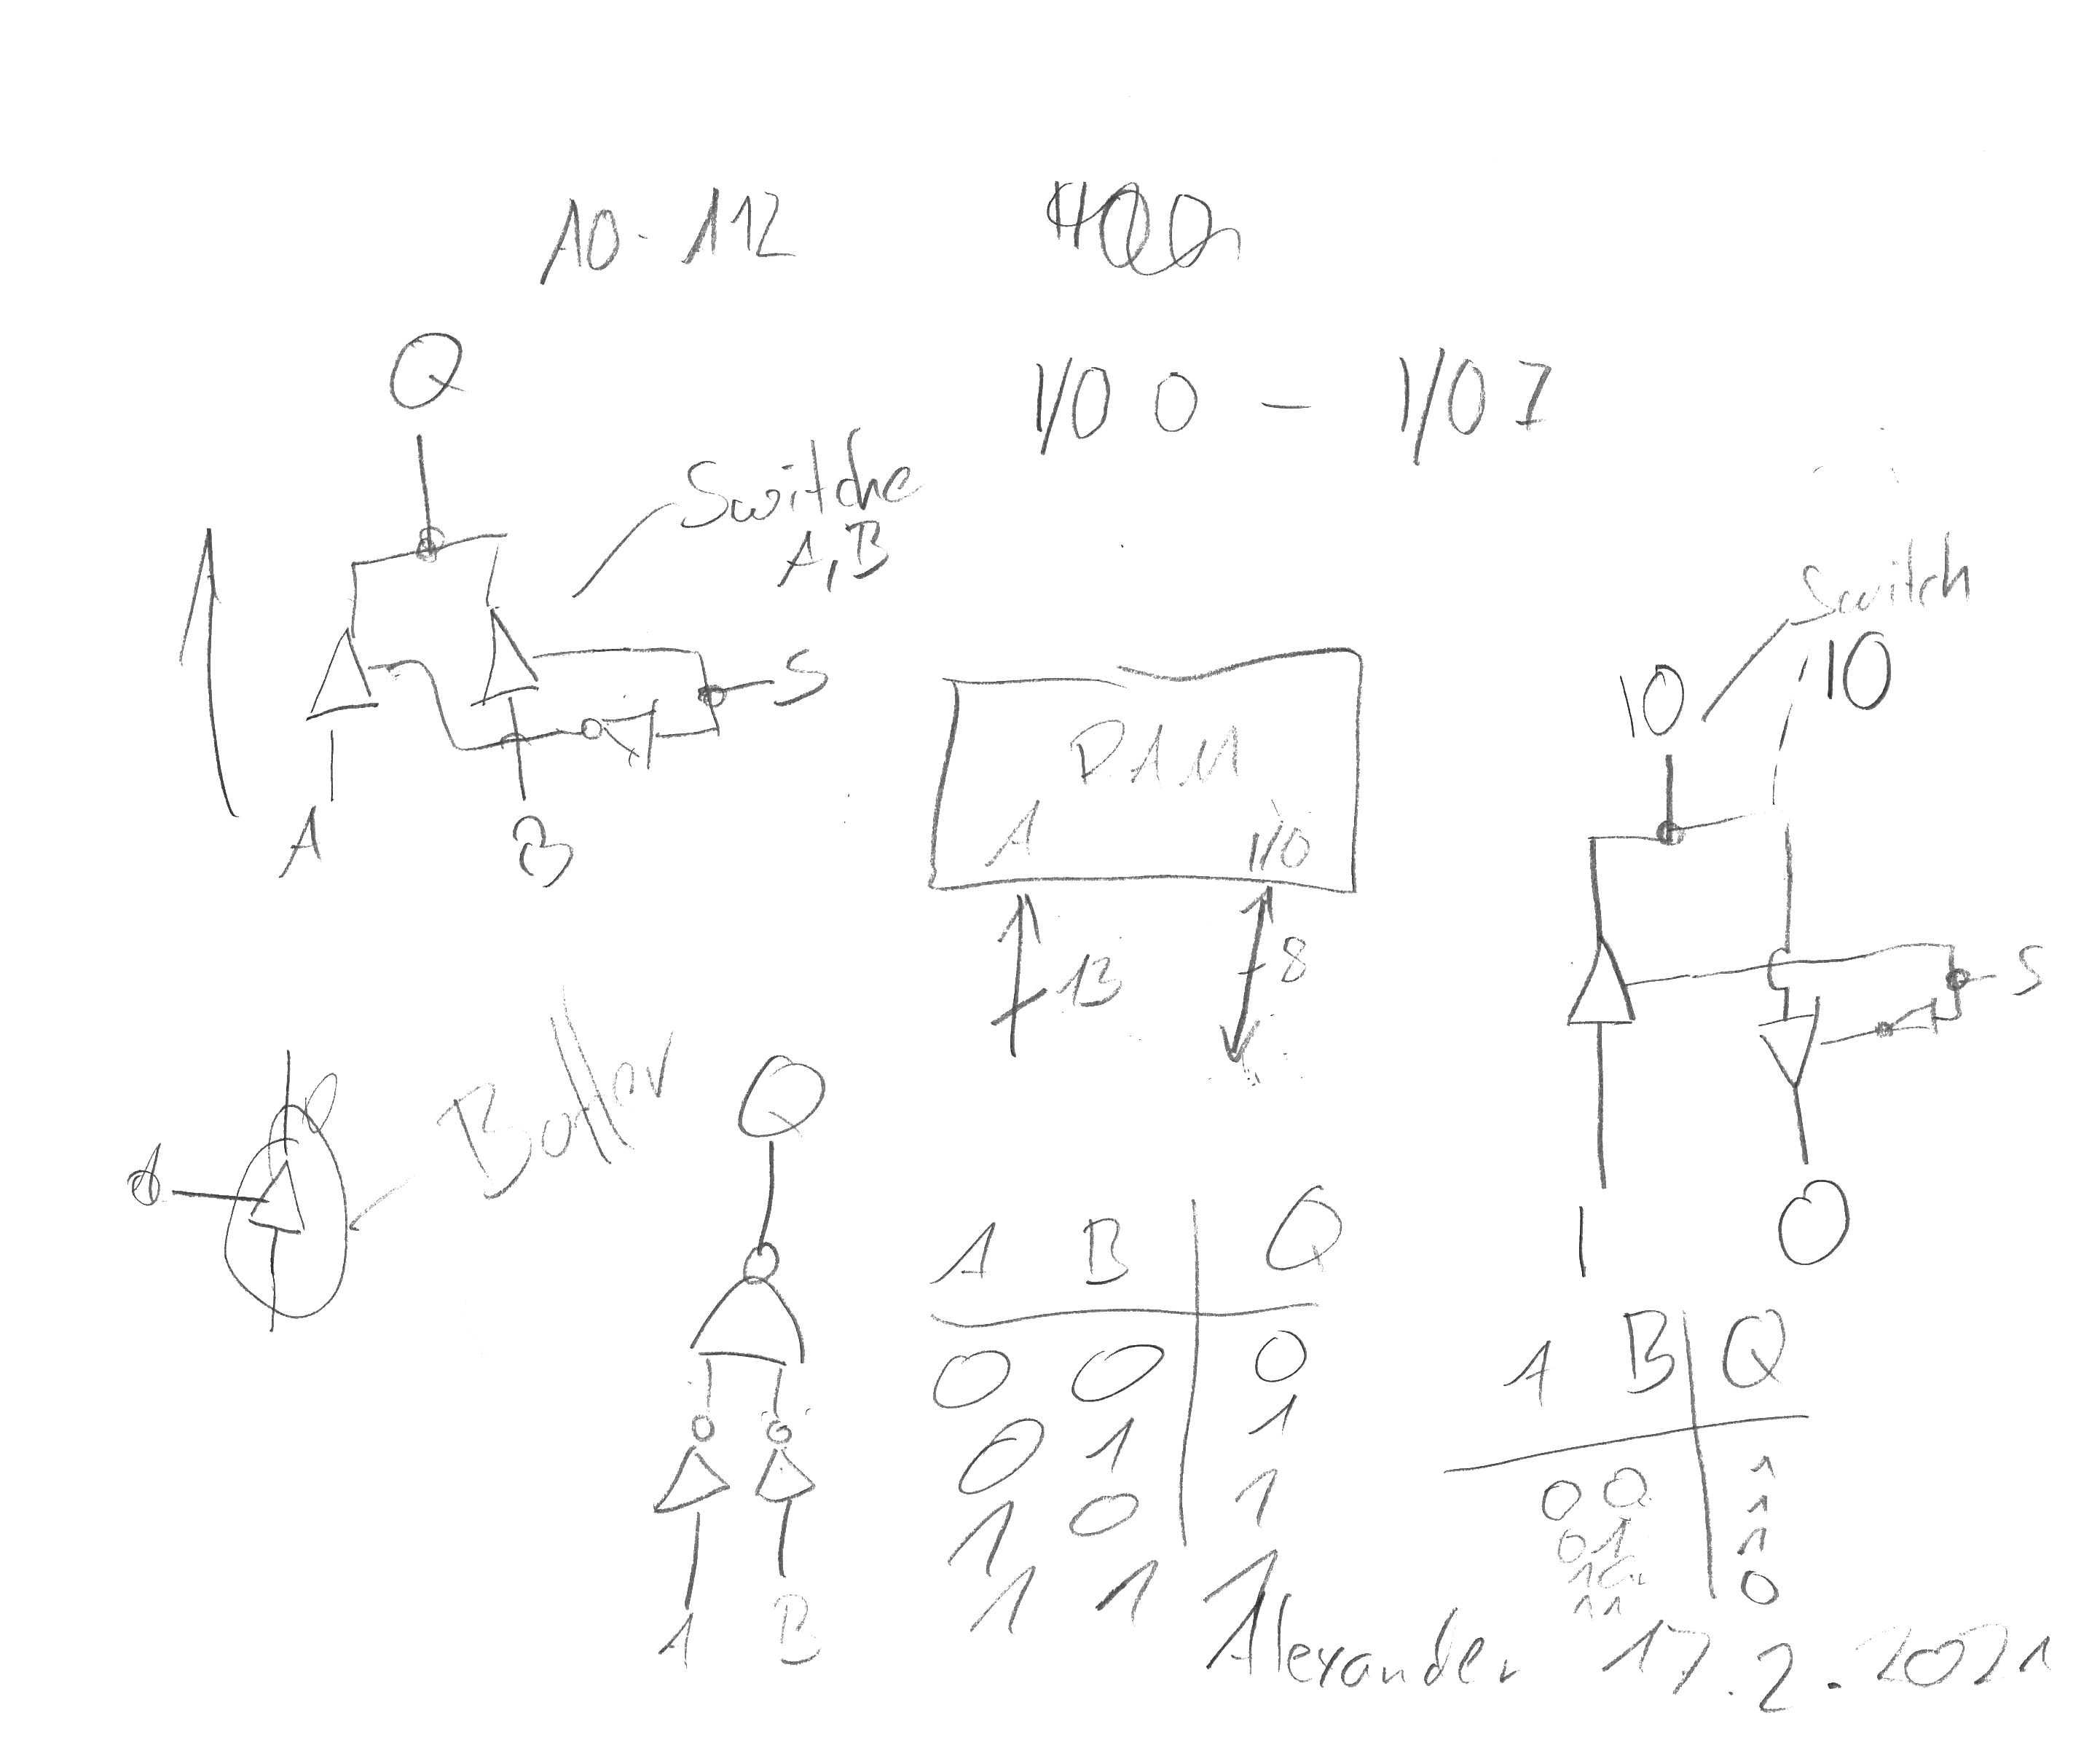 A0 - A12
I/O 0 - I/O 7
Q
Switche
A,B
S
A B
Switch
IO
IO
S
I O
RAM
A I/O
13 8
Q
A B
A B Q
0 0 0
0 1 1
1 0 1
1 1 1
A B Q
0 0 1
0 1 1
1 0 1
1 1 0
Alexander 17.2.2021